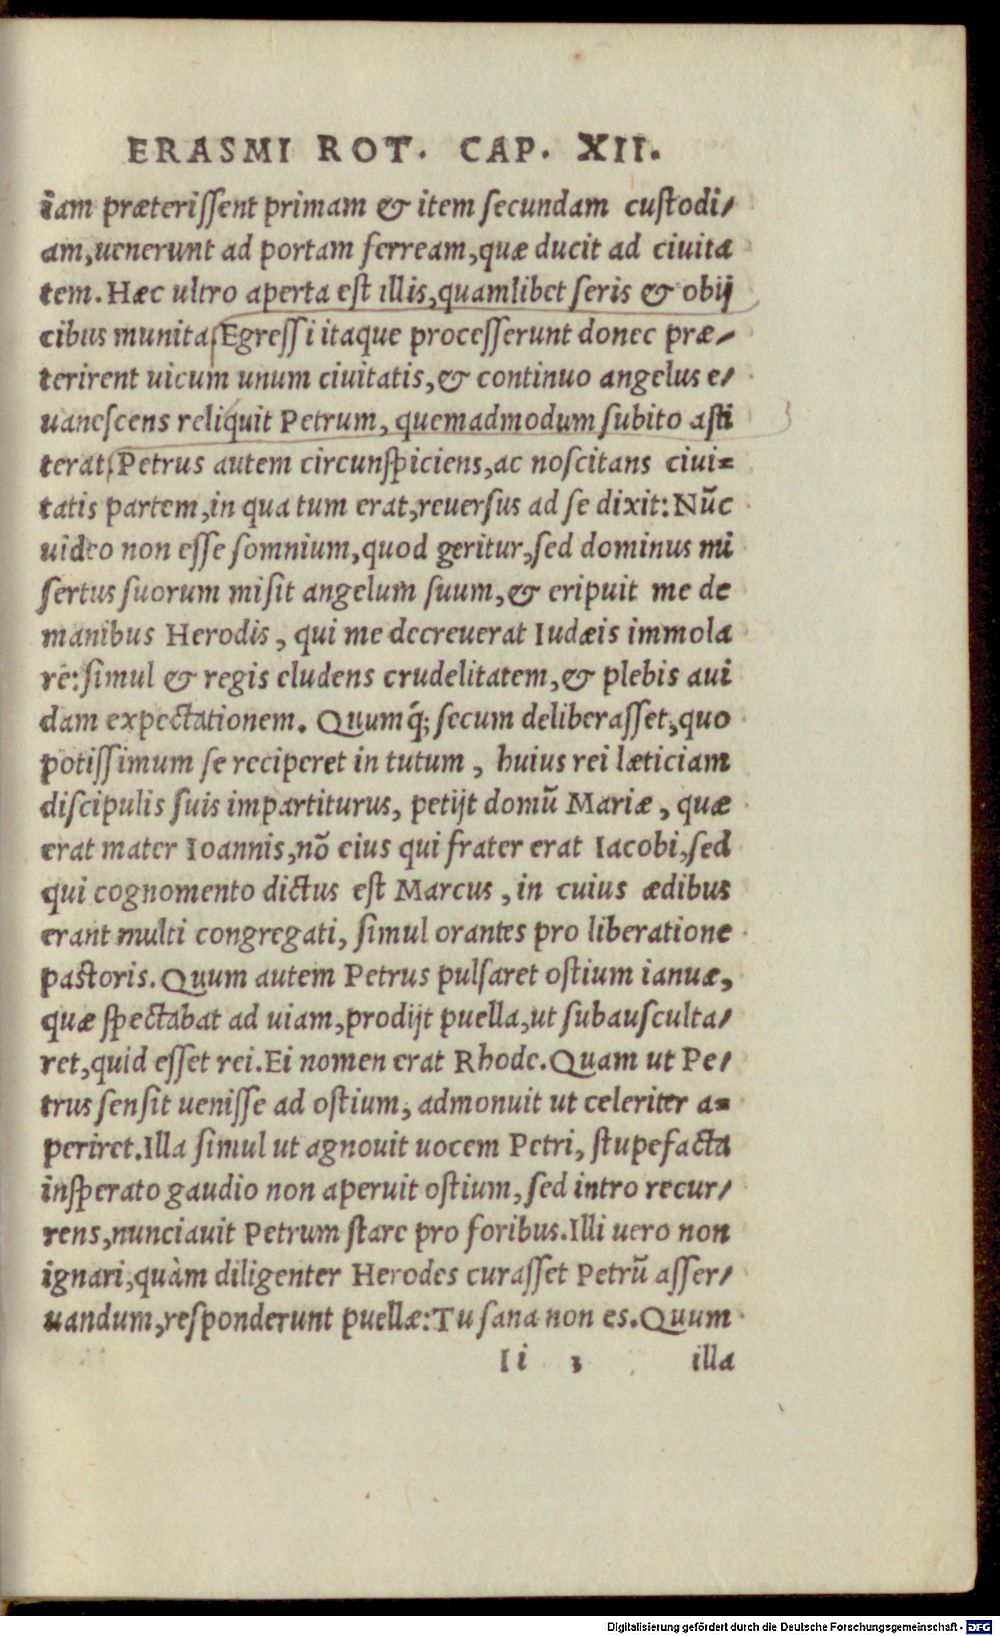 ERASMI ROT. CAP. XII.
iam præterissent primam & item secundam custodi/
am,uenerunt ad portam ferream,quæ ducit ad ciuita
tem. Hæc ultro aperta est illis,quamlibet seris & obij
cibus munita. Egressi itaque processerunt donec præ/
terirent uicum unum ciuitatis,& continuo angelus e/
uanescens reliquit Petrum, quemadmodum subito asti
terat. Petrus autem circunspiciens,ac noscitans ciui=
tatis partem,in qua tum erat,reuersus ad se dixit: Nūc
uideo non esse somnium,quod geritur,sed dominus mi
sertus suorum misit angelum suum,& eripuit me de
manibus Herodis, qui me decreuerat Iudæis immola
re: simul & regis eludens crudelitatem,& plebis aui
dam expectationem. Quumq́; secum deliberasset,quo
potissimum se reciperet in tutum, huius rei læticiam
discipulis suis impartiturus, petijt domū Mariæ, quæ
erat mater Ioannis,nō eius qui frater erat Iacobi,sed
qui cognomento dictus est Marcus, in cuius ædibus
erant multi congregati, simul orantes pro liberatione
pastoris. Quum autem Petrus pulsaret ostium ianuæ,
quæ spectabat ad uiam,prodijt puella,ut subausculta/
ret,quid esset rei. Ei nomen erat Rhode. Quam ut Pe/
trus sensit uenisse ad ostium, admonuit ut celeriter a=
periret. Illa simul ut agnouit uocem Petri, stupefacta
insperato gaudio non aperuit ostium, sed intro recur/
rens,nunciauit Petrum stare pro foribus. Illi uero non
ignari,quàm diligenter Herodes curasset Petrū asser/
uandum,responderunt puellæ: Tu sana non es. Quum
Ii 3 illa
Digitalisierung gefördert durch die Deutsche Forschungsgemeinschaft - DFG